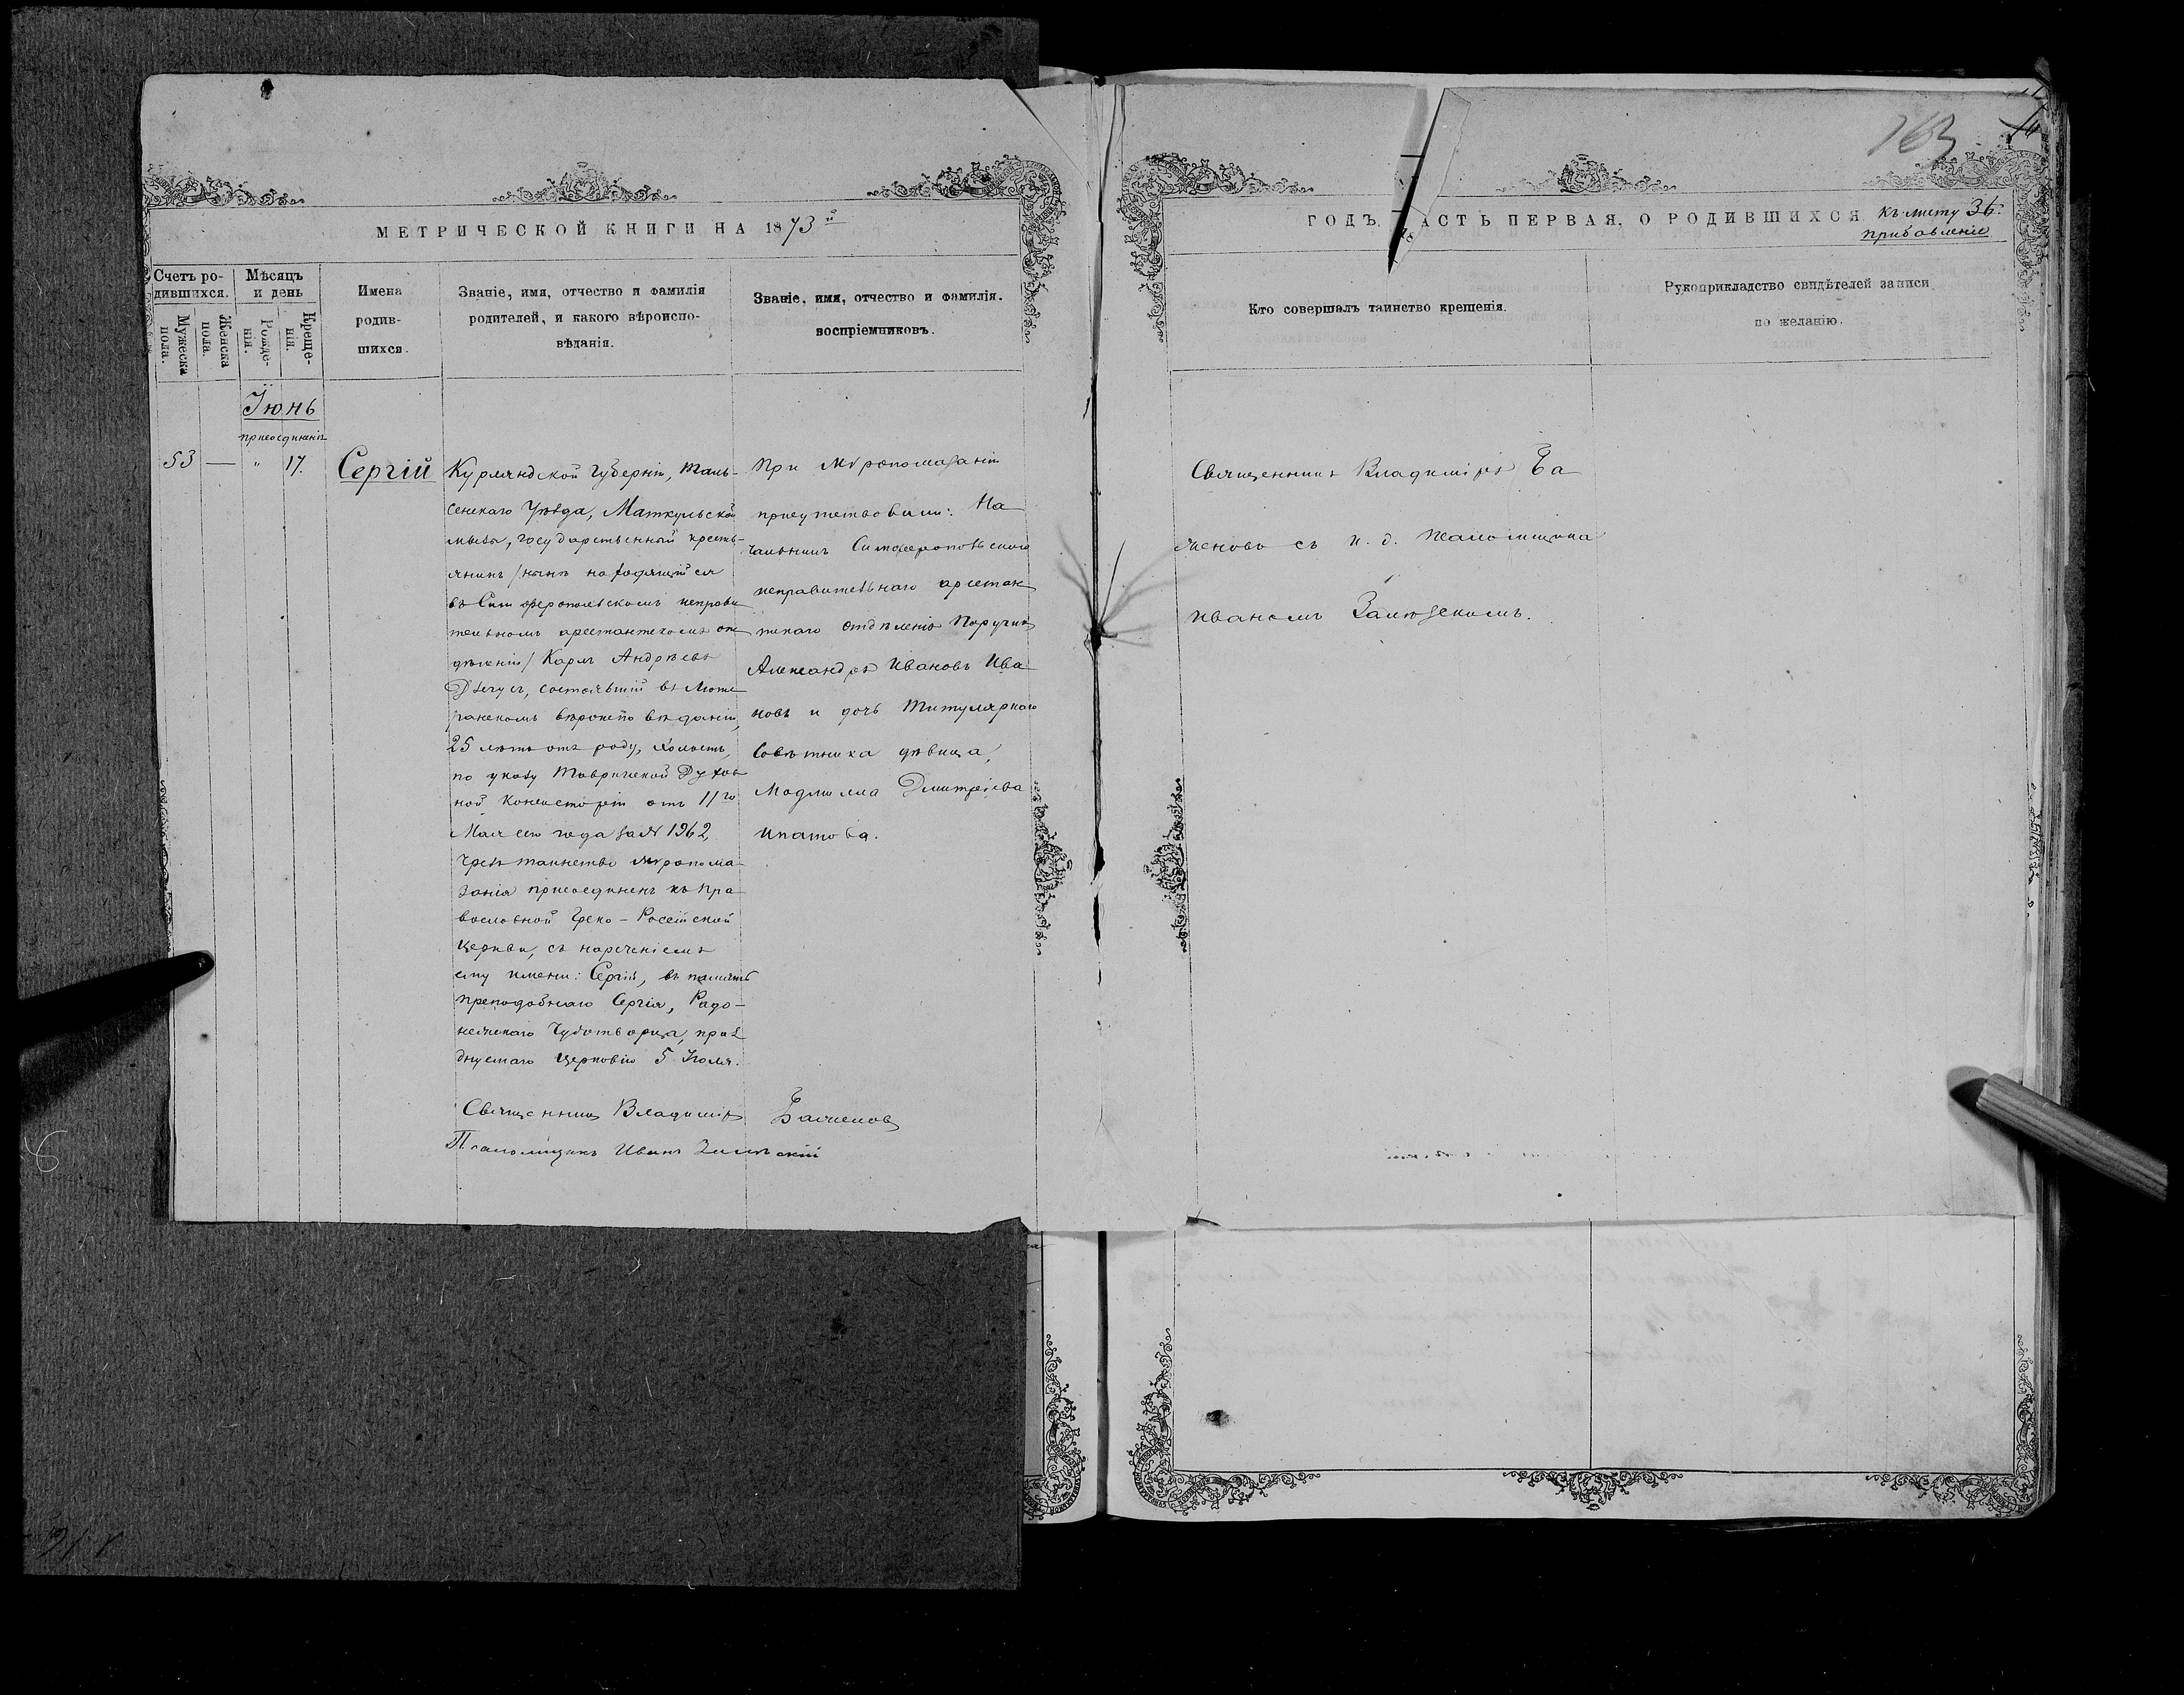 МЕТРИЧЕСКОЙ КНИГИ НА 1873й
Счетъ ро-
дившихся.
Мужеска
пола.
Женска
пола.
Мѣсяцъ
и день
Рожде-
нія.
Креще-
нія.
Имена
родив-
шихся.
Званіе, имя, отчество и фамилія
родителей, и какого вѣроиспо-
вѣданія.
Званіе, имя, отчество и фамилія.
воспріемниковъ.
Іюнь
присоединеніе
53 — " 17.
Сергій
Курляндской Губерніи, Таль-
сенскаго Уѣзда, Маткульской
мызы, государственный кресть-
янинъ /нынѣ находящійся
въ Симферопольскомъ исправи
тельномъ арестантскомъ от
дѣленіи/ Карлъ Андрѣевъ
состоявшій въ Люте
ранскомъ вѣроисповѣданіи,
25 лѣтъ отъ роду, холостъ,
по указу Таврической Духов
ной Консисторіи отъ 11го
Мая сего года за № 1962,
чрезъ таинство мѵропома
занія присоединенъ къ Пра
вославной Греко-Россійской
Церкви, съ нареченіемъ
ему имени: Сергій, въ память
преподобнаго Сергія, Радо-
нежскаго Чудотворца, праз
днуемаго Церковію 5 Іюля.
При Мѵропомазаніи
присутствовали: На
чальникъ Симферопольскаго
исправительнаго арестан
тскаго отдѣленія Поручикъ
Александръ Ивановъ Ива
новъ и дочь Титулярнаго
Совѣтника дѣвица,
Дмитріева
Ипатова.
Священникъ Владиміръ Баженовъ
Псаломщикъ Иванъ Залѣскій
163
ГОДЪ, АСТЬ ПЕРВАЯ, О РОДИВШИХСЯ къ листу 36.
прибавленіе
Кто совершалъ таинство крещенія.
Рукоприкладство свидѣтелей записи
по желанію.
Священникъ Владиміръ Ба
женовъ съ и. д. Псаломщика
Иваномъ Залѣзскимъ.